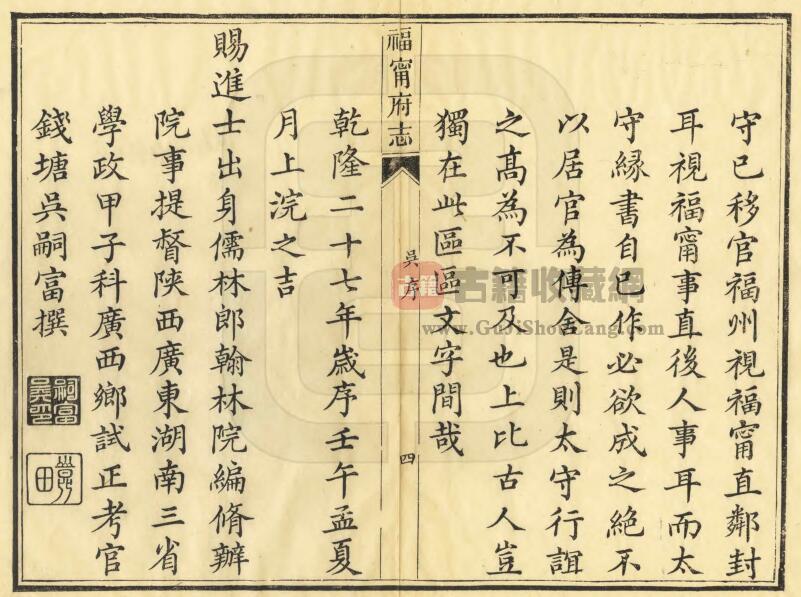 守已移官福州視福甯直鄰封
耳視福甯事直後人事耳而太
守縁書自己作必欲成之絶不
以居官為傳舍是則太守行誼
之髙為不可及也上比古人豈
獨在此區區文字間哉
福甯府志
吳序
四
乾隆二十七年嵗序壬午孟夏
月上浣之吉
賜進士出身儒林郎翰林院編脩辦
院事提督陜西廣東湖南三省
學政甲子科廣西鄉試正考官
錢塘吳嗣富撰
嗣富
吳印
田
古籍
古籍收藏網
www.GujiShouCang.com